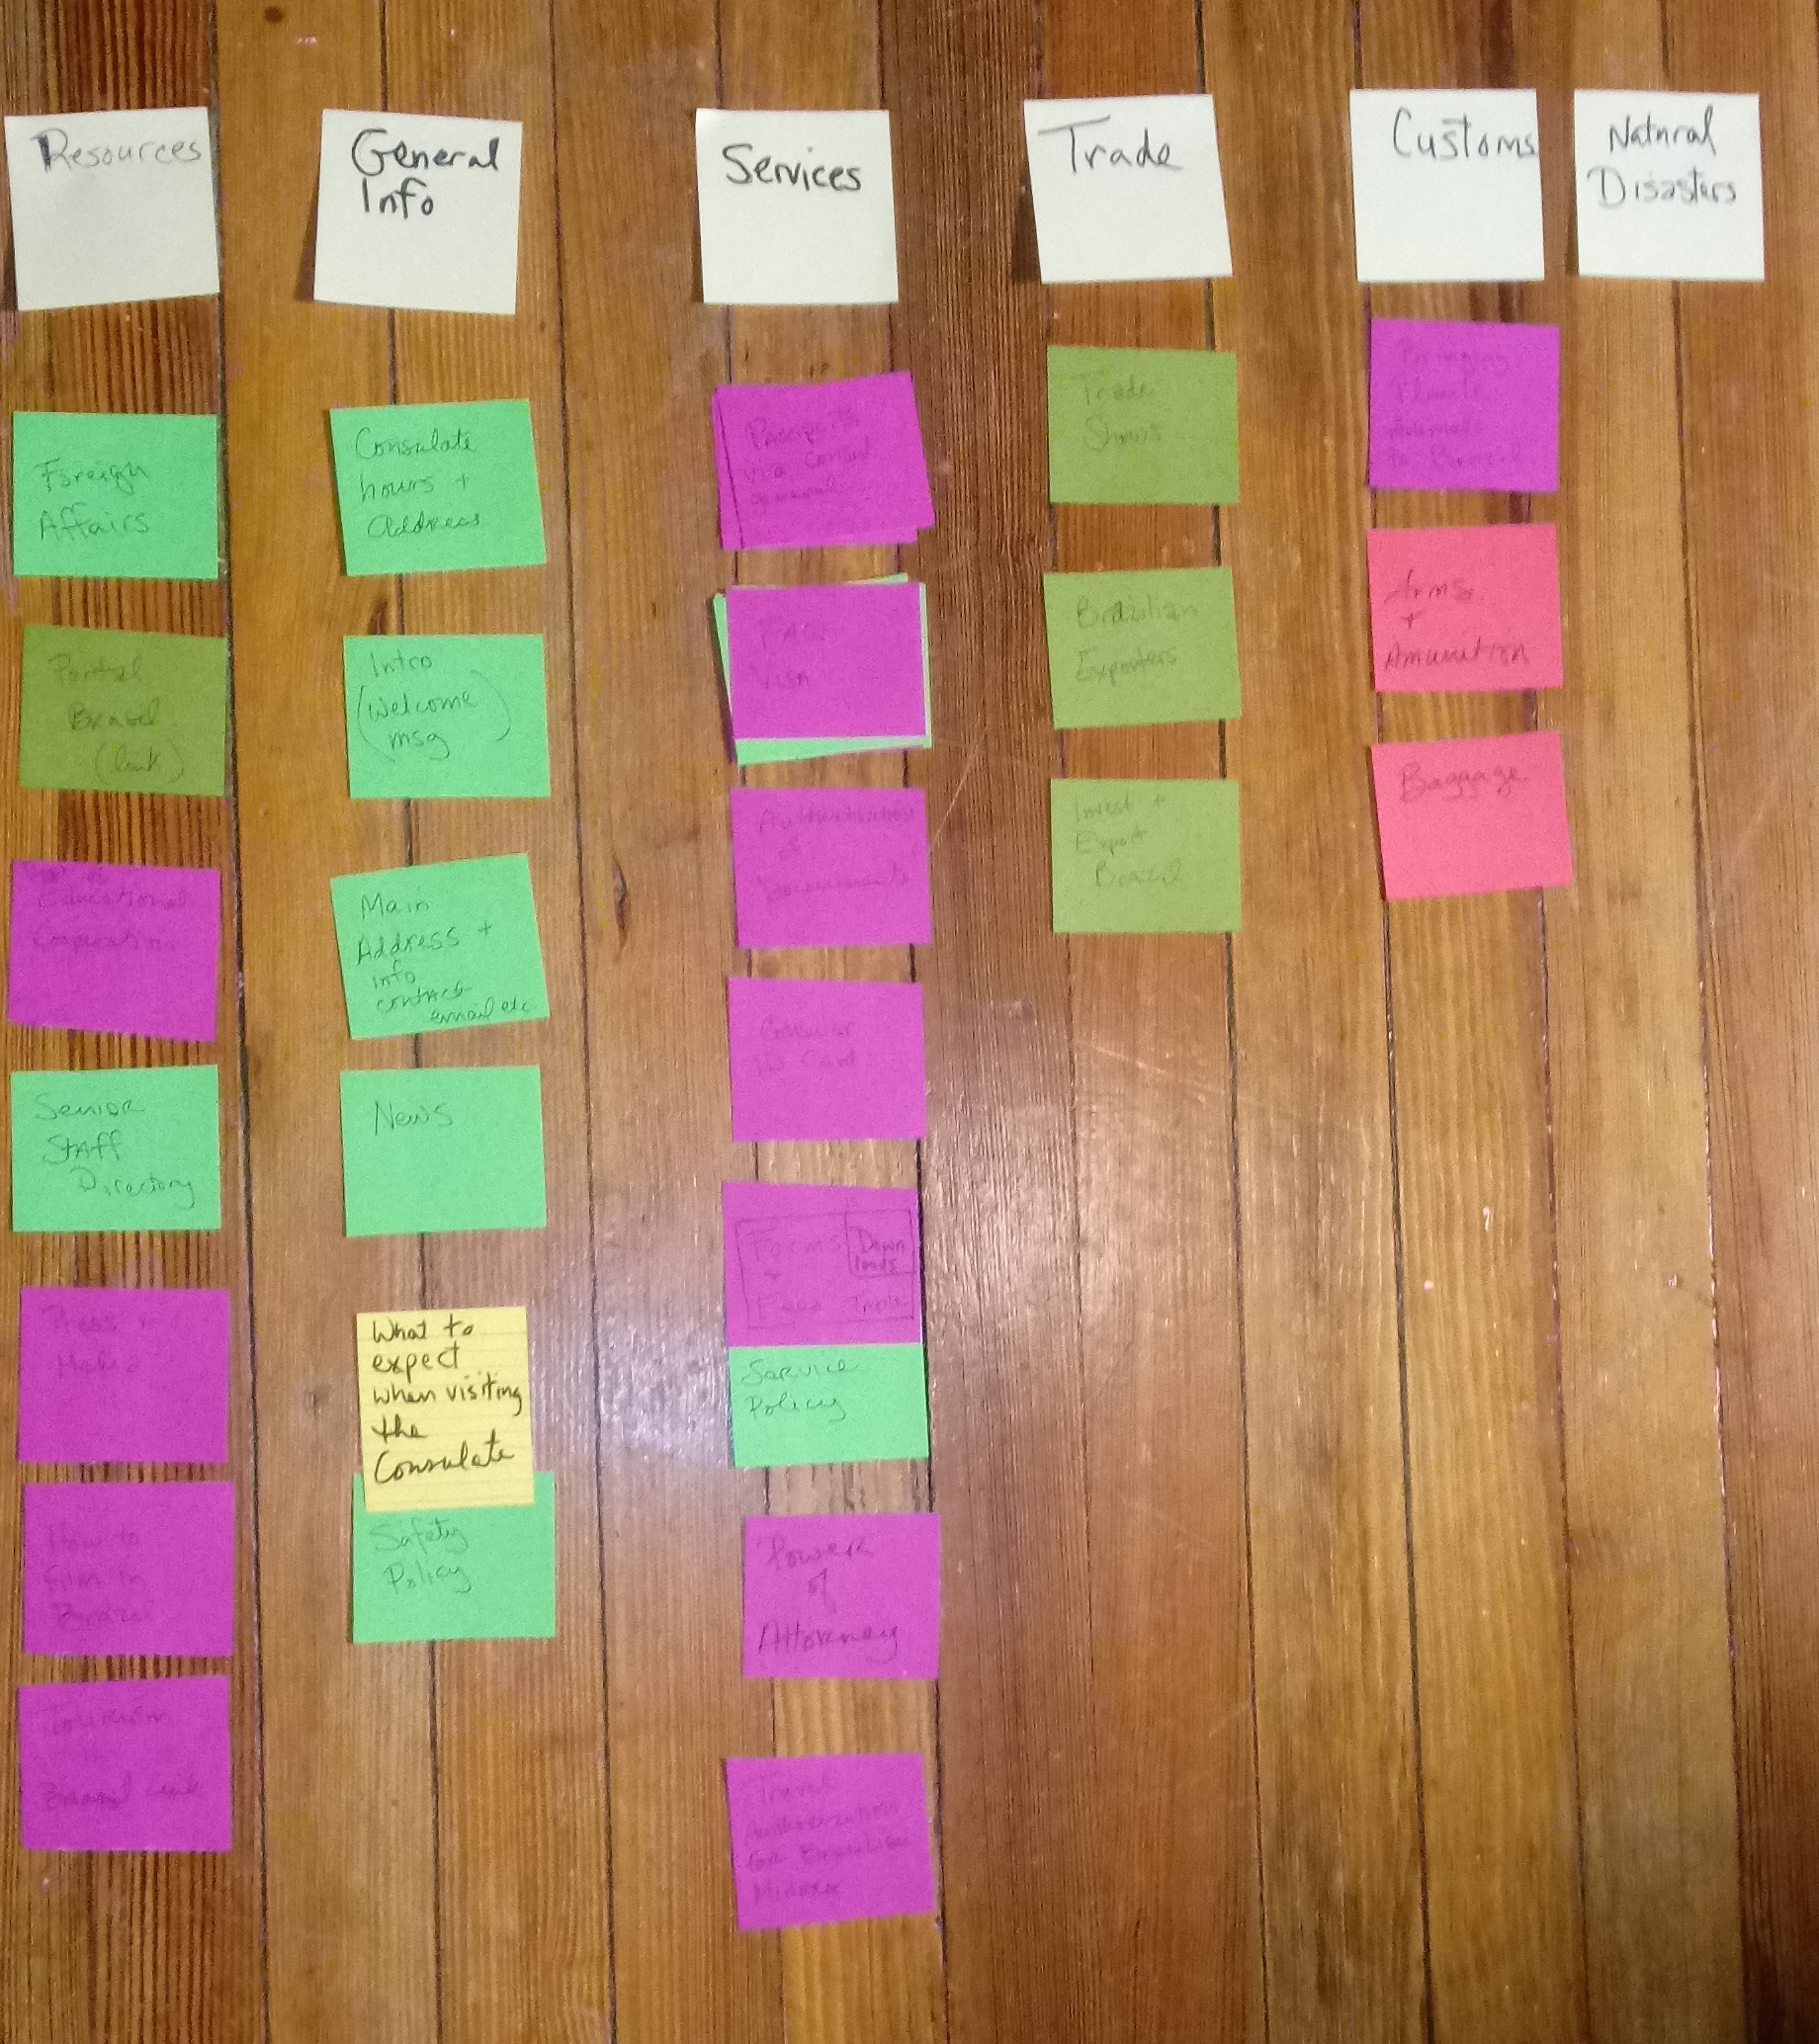 Resources
Foreign
Affairs
Portal
Brasil
(link)
Educational
Cooperation
Senior
Staff
Directory
Press +
Media
How to
Film in
Brazil
Tourism
in
Brazil link
General
Info
Consulate
hours +
Address
Intro
(Welcome
msg)
Main
Address +
info
contact
email etc
News
What to
expect
when visiting
the
Consulate
Safety
Policy
Services
Passports
via consul
general
FAQ
Visa
Authentication
of
Documents
Consular
ID Card
Forms
+
Fees
Down
loads
Service
Policy
Power
of
Attorney
Travel
Authorization
for Brazilian
Minors
Trade
Trade
Shows
Brazilian
Exporters
Invest +
Export
Brazil
Customs
Bringing
to Brazil
Arms
+
Amunition
Baggage
Natural
Disasters